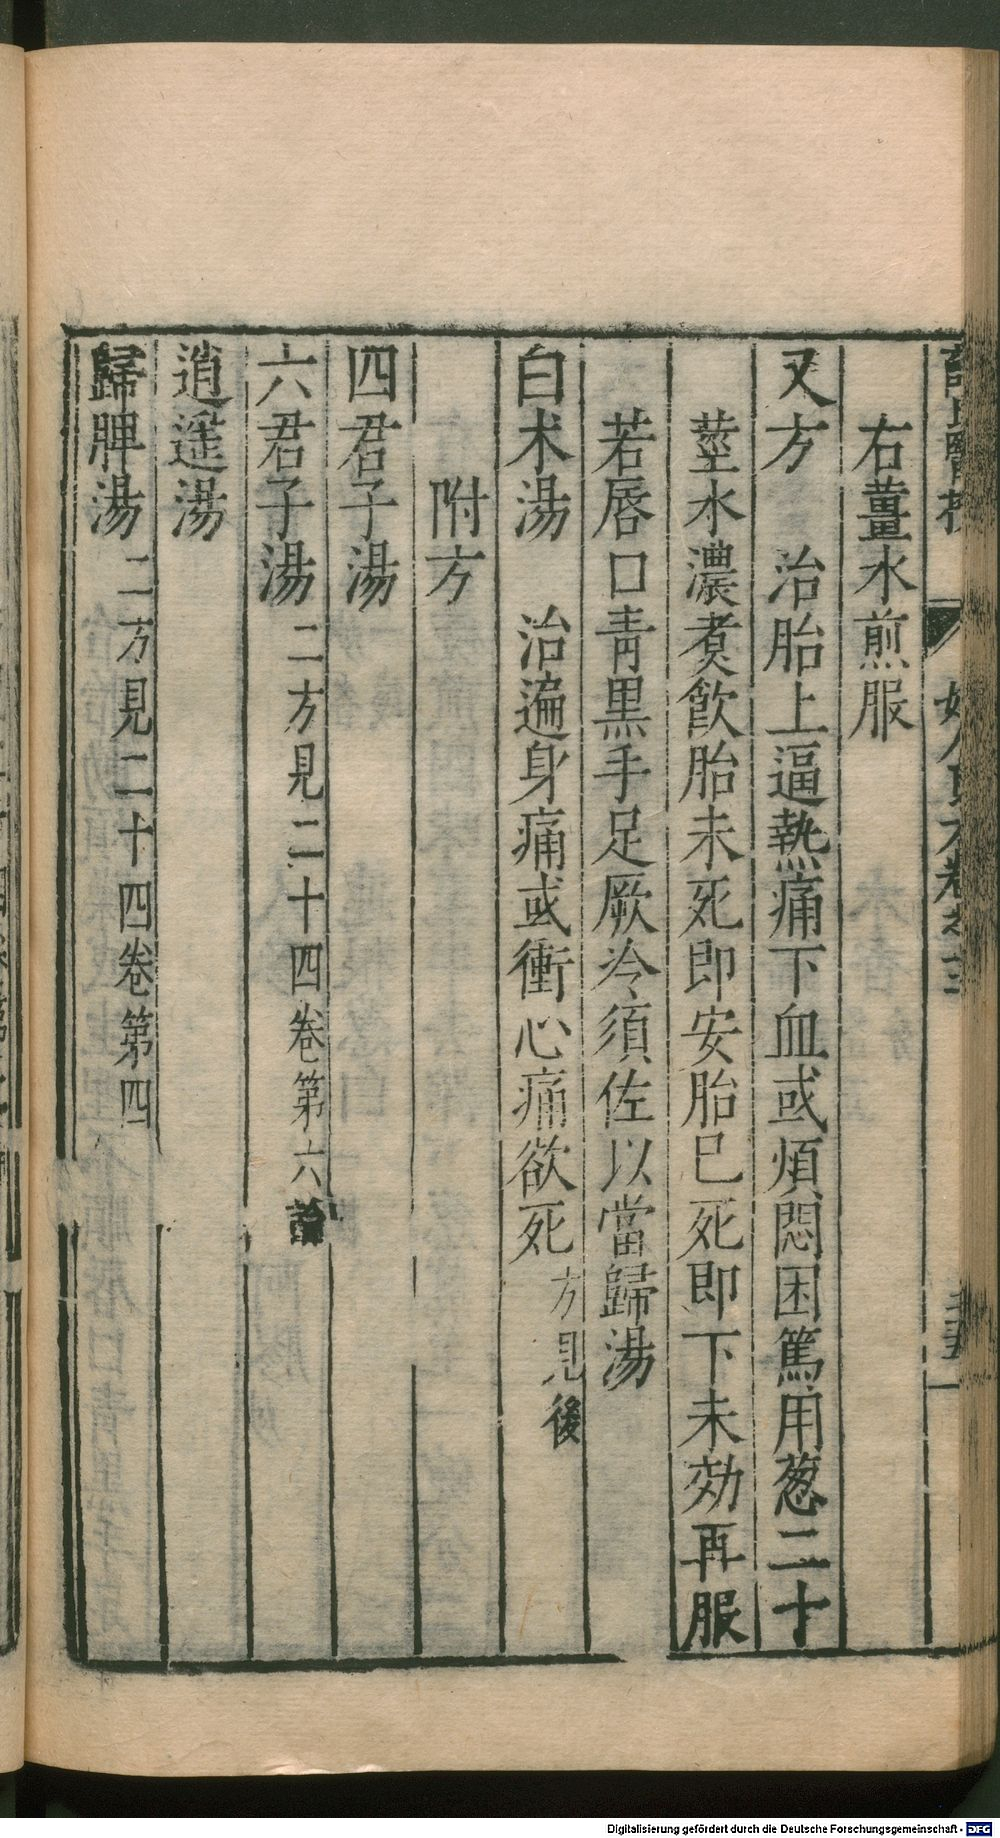 右薑水煎服
又方　治胎上逼熱痛下血或煩悶困篤用葱二十
莖水濃煮飲胎未死即安胎已死即下未效再服
若唇口青黑手足厥冷須佐以當歸湯
白朮湯　治遍身痛或衝心痛欲死方見後
附方
四君子湯
六君子湯二方見二十四卷第六論
逍遥湯
歸脾湯二方見二十四卷第四
Digitalisierung gefördert durch die Deutsche Forschungsgemeinschaft - DFG